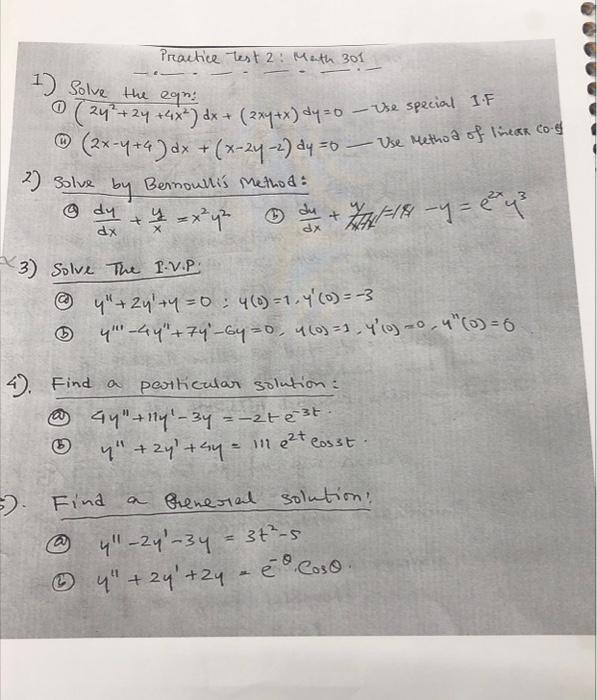 Practice Test 2: Math 301
1) Solve the eqn:
(i) (2y²+2y+4x²)dx + (2xy+x)dy=0 — Use special I.F
(ii) (2x-y+4)dx + (x-2y-2)dy=0 — Use Method of linear co-ef
2) Solve by Bernoulli's Method:
(a) dy/dx + y/x = x²y² (b) dy/dx - y = e^{2x}y³
3) Solve The I.V.P:
(a) y''+2y'+y=0 ; y(0)=1, y'(0)=-3
(b) y'''-4y''+7y'-6y=0, y(0)=1, y'(0)=0, y''(0)=0
4). Find a particular solution:
(a) 4y''+11y'-3y = -2t e^{-3t}.
(b) y''+2y'+4y = 111 e^{2t} cos3t.
5). Find a General solution:
(a) y''-2y'-3y = 3t²-5
(b) y''+2y'+2y = e^{-θ}.Cosθ.